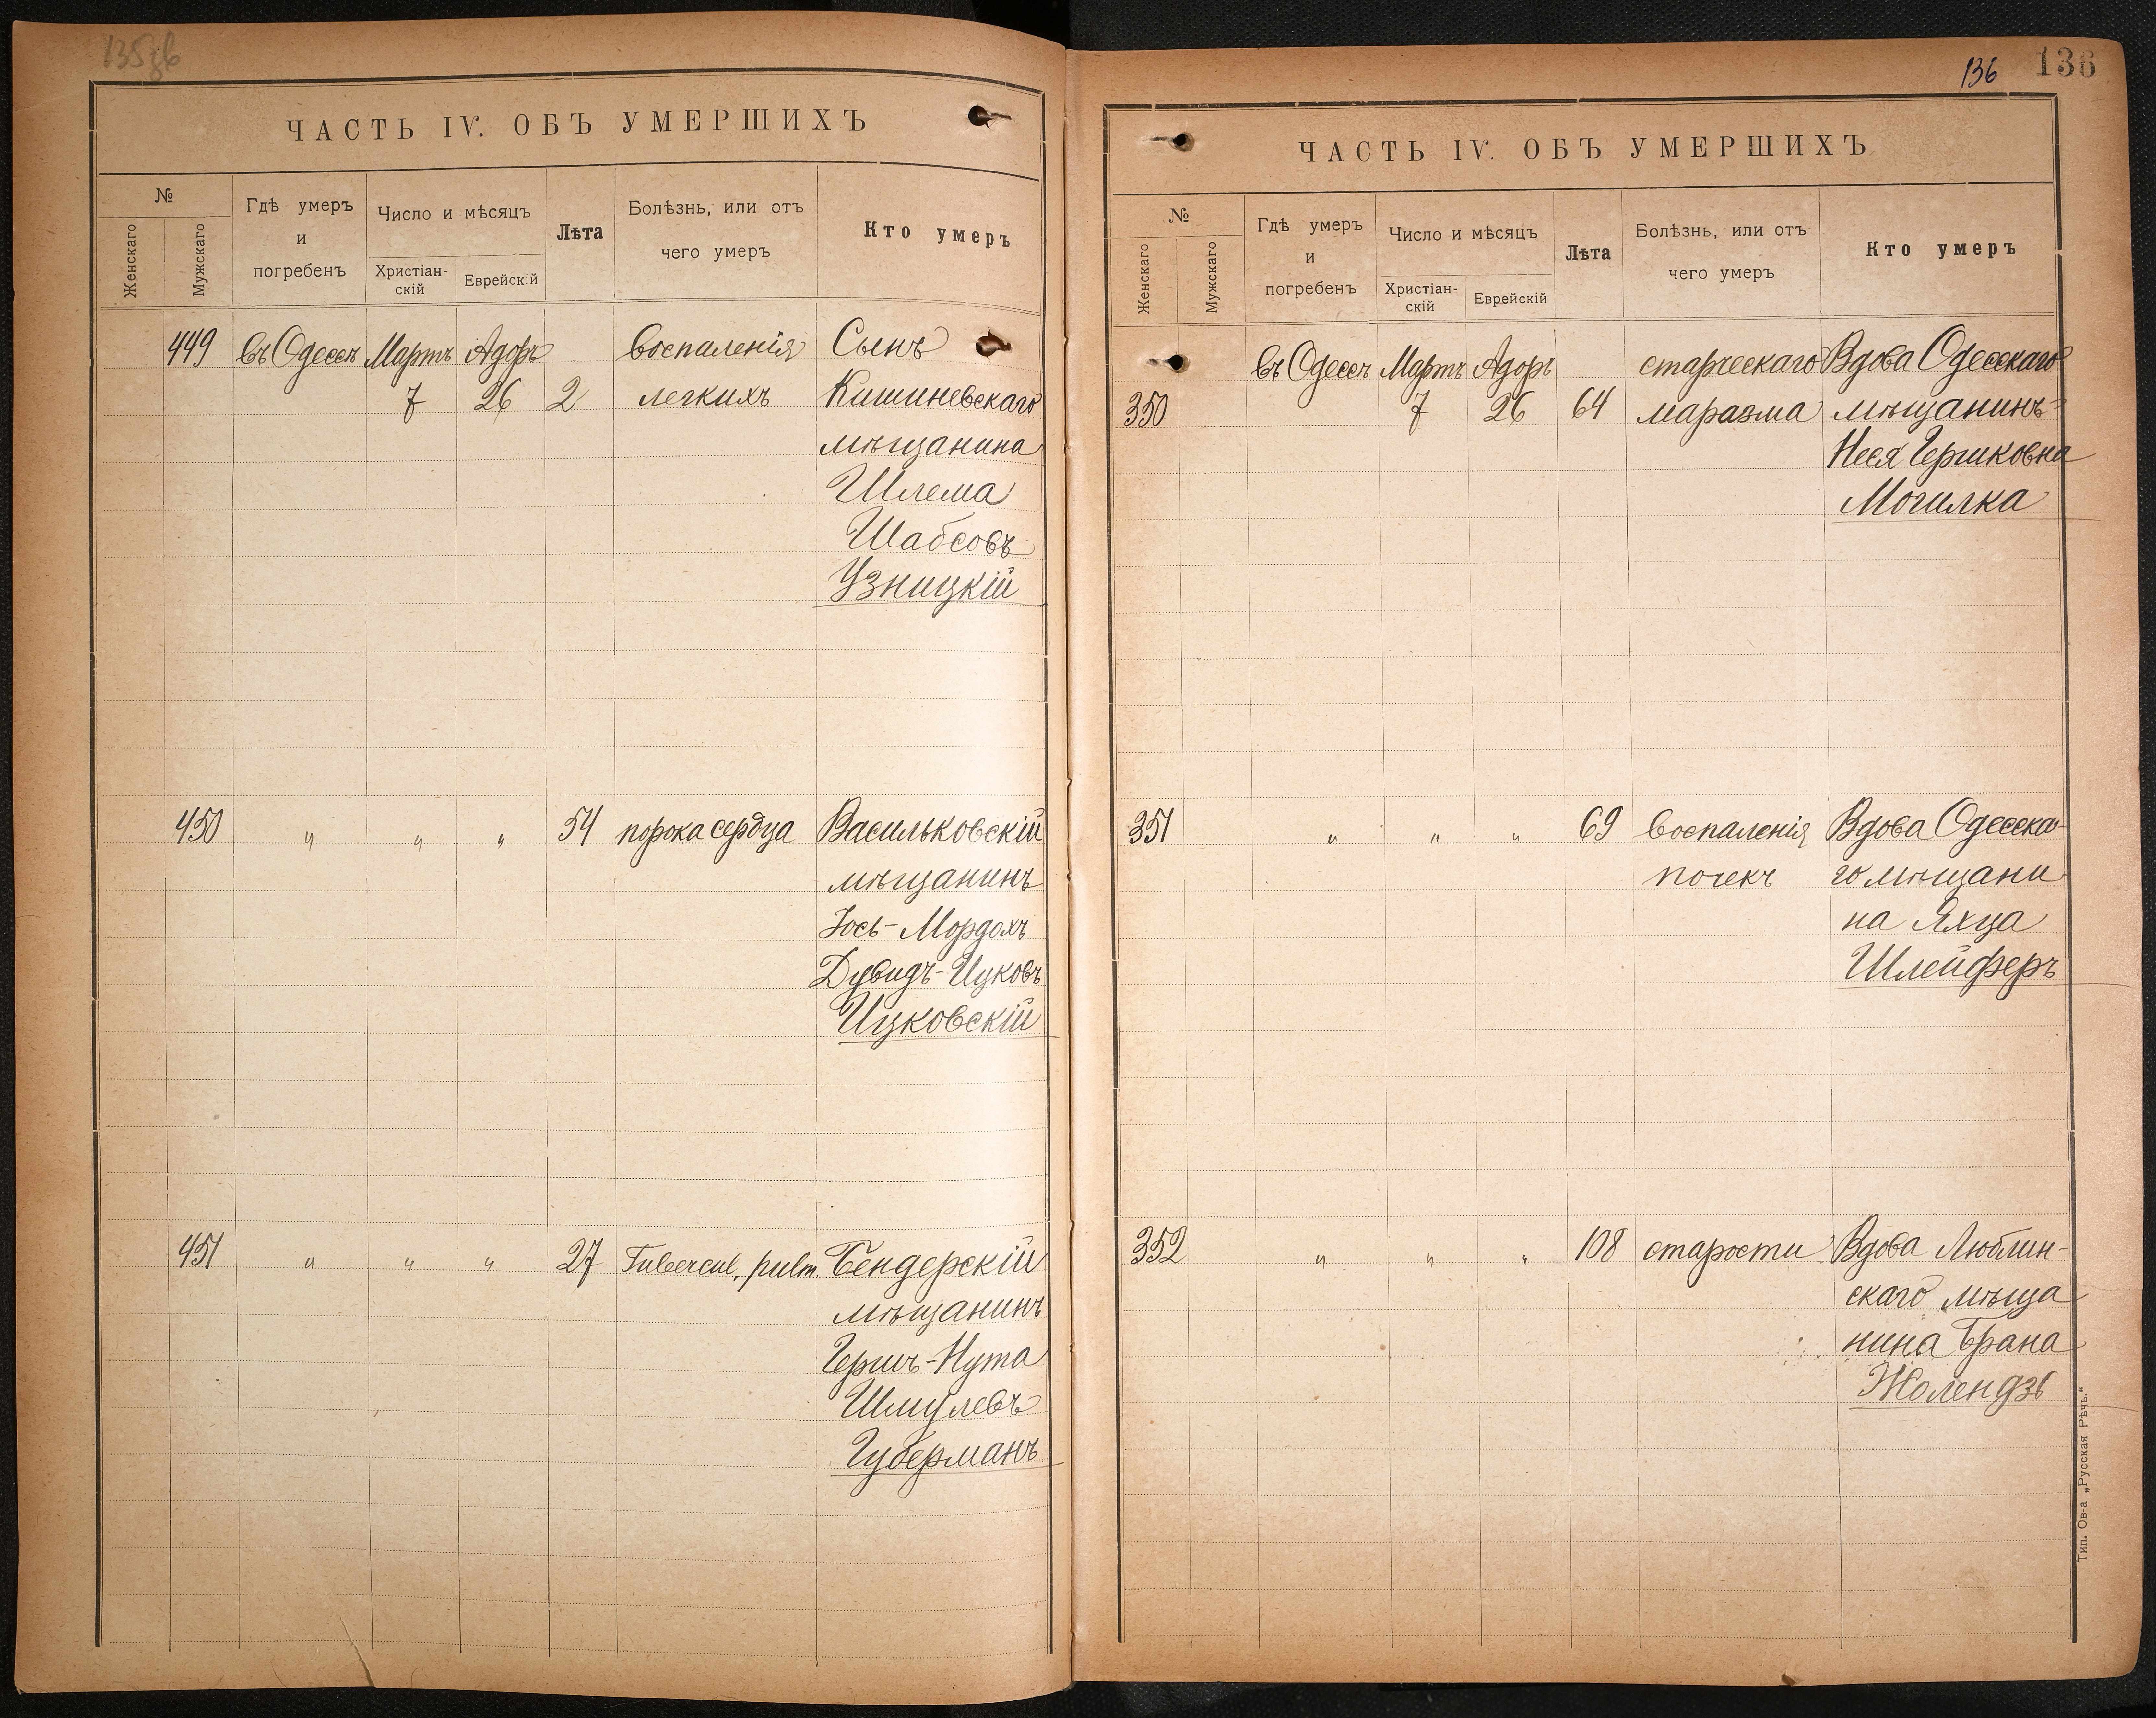 135об
ЧАСТЬ IV. ОБЪ УМЕРШИХЪ
№
Женскаго
Мужскаго
Гдѣ умеръ
и
погребенъ
Число и мѣсяцъ
Христіан-
скій
Еврейскій
Лѣта
Болѣзнь, или отъ
чего умеръ
Кто умеръ
449 въ Одессѣ Мартъ Адоръ воспаленія Сынъ
7 26 2 легкихъ Кишиневскаго
мѣщанина
Шлема
Шабсовъ
Узницкій
450 " " " 54 порока сердца Васильковскій
мѣщанинъ
Іось-Мордохъ
Дувидъ-Ицковъ
Ицковскій
451 " " " 27 Tubercul. pulm. Бендерскій
мѣщанинъ
Гершъ-Нута
Шмулевъ
Губерманъ
136 136
ЧАСТЬ IV. ОБЪ УМЕРШИХЪ
№
Женскаго
Мужскаго
Гдѣ умеръ
и
погребенъ
Число и мѣсяцъ
Христіан-
скій
Еврейскій
Лѣта
Болѣзнь, или отъ
чего умеръ
Кто умеръ
въ Одессѣ Мартъ Адоръ старческаго Вдова Одесскаго
350 7 26 64 маразма мѣщанинъ
Неся Гершковна
Могилка
351 " " " 69 воспаленія Вдова Одесска-
почекъ го мѣщани
на Яхца
Шлейферъ
352 " " " 108 старости Вдова Люблин-
скаго мѣща
нина Брана
Жолендзь
Тип. Ов-а „Русская Рѣчь.“